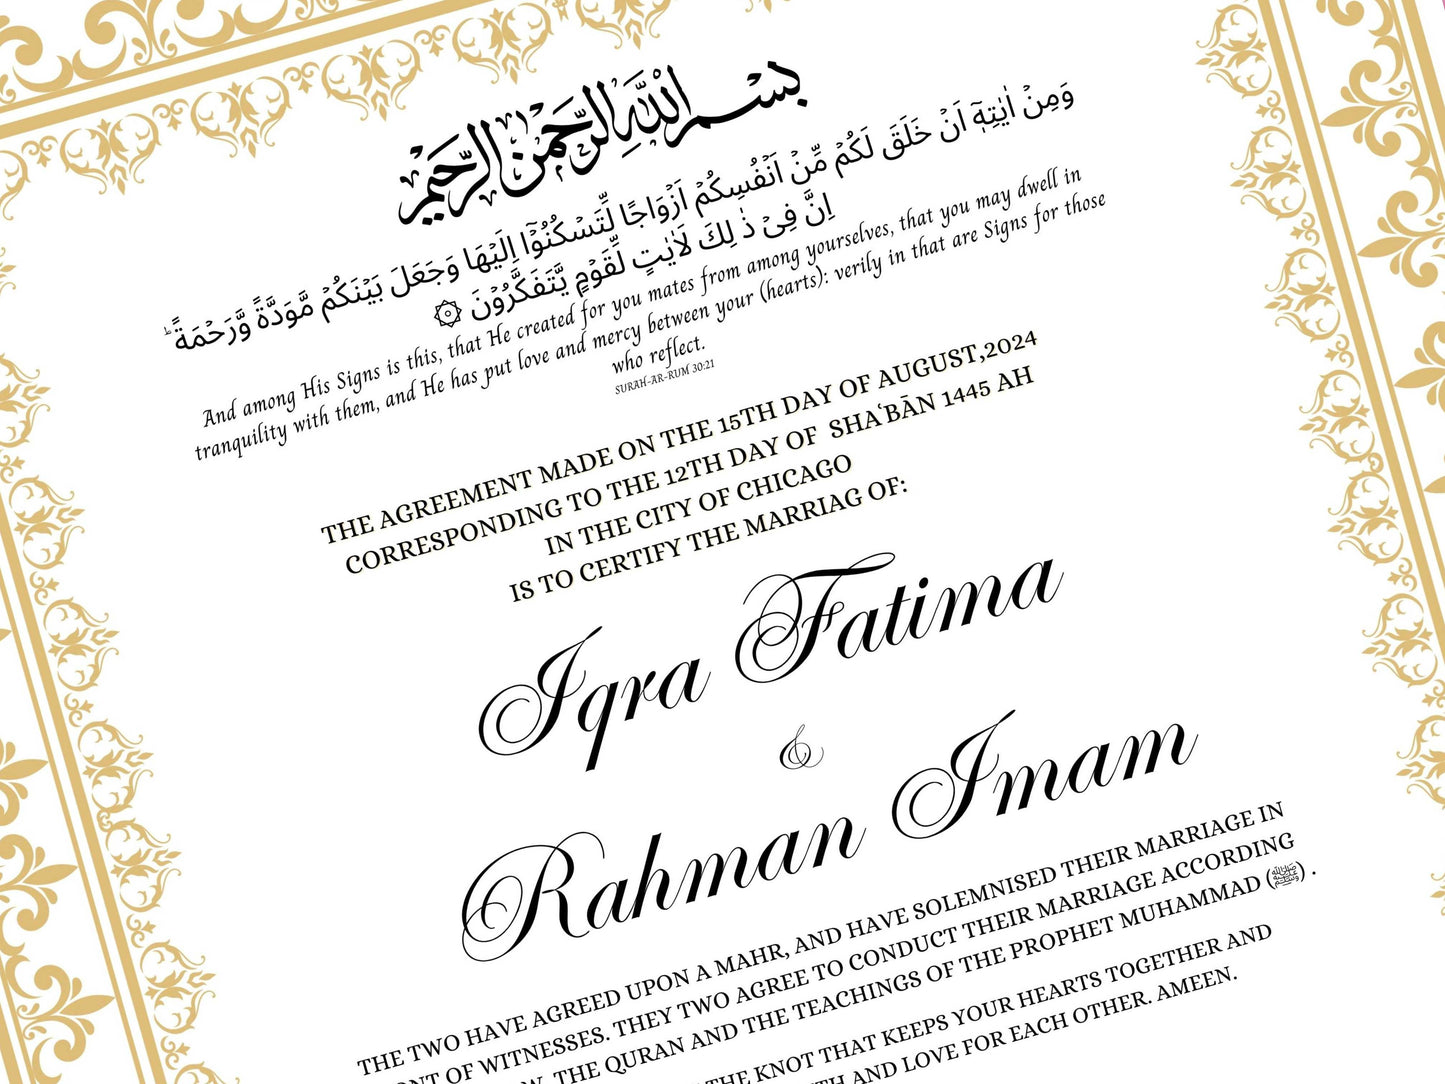 بسم الله الرحمن الرحيم
وَمِنْ اٰيٰتِهٖٓ اَنْ خَلَقَ لَكُمْ مِّنْ اَنْفُسِكُمْ اَزْوَاجًا لِّتَسْكُنُوْٓا اِلَيْهَا وَجَعَلَ بَيْنَكُمْ مَّوَدَّةً وَّرَحْمَةً ؕ
اِنَّ فِىْ ذٰ لِكَ لَاٰيٰتٍ لِّقَوْمٍ يَّتَفَكَّرُوْنَ ۞
And among His Signs is this, that He created for you mates from among yourselves, that you may dwell in
tranquility with them, and He has put love and mercy between your (hearts): verily in that are Signs for those
who reflect.
SURAH-AR-RUM 30:21
THE AGREEMENT MADE ON THE 15TH DAY OF AUGUST,2024
CORRESPONDING TO THE 12TH DAY OF SHAʿBĀN 1445 AH
IN THE CITY OF CHICAGO
IS TO CERTIFY THE MARRIAG OF:
Iqra Fatima
&
Rahman Imam
THE TWO HAVE AGREED UPON A MAHR, AND HAVE SOLEMNISED THEIR MARRIAGE IN
OF WITNESSES. THEY TWO AGREE TO CONDUCT THEIR MARRIAGE ACCORDING
THE QURAN AND THE TEACHINGS OF THE PROPHET MUHAMMAD (ﷺ) .
THE KNOT THAT KEEPS YOUR HEARTS TOGETHER AND
AND LOVE FOR EACH OTHER. AMEEN.